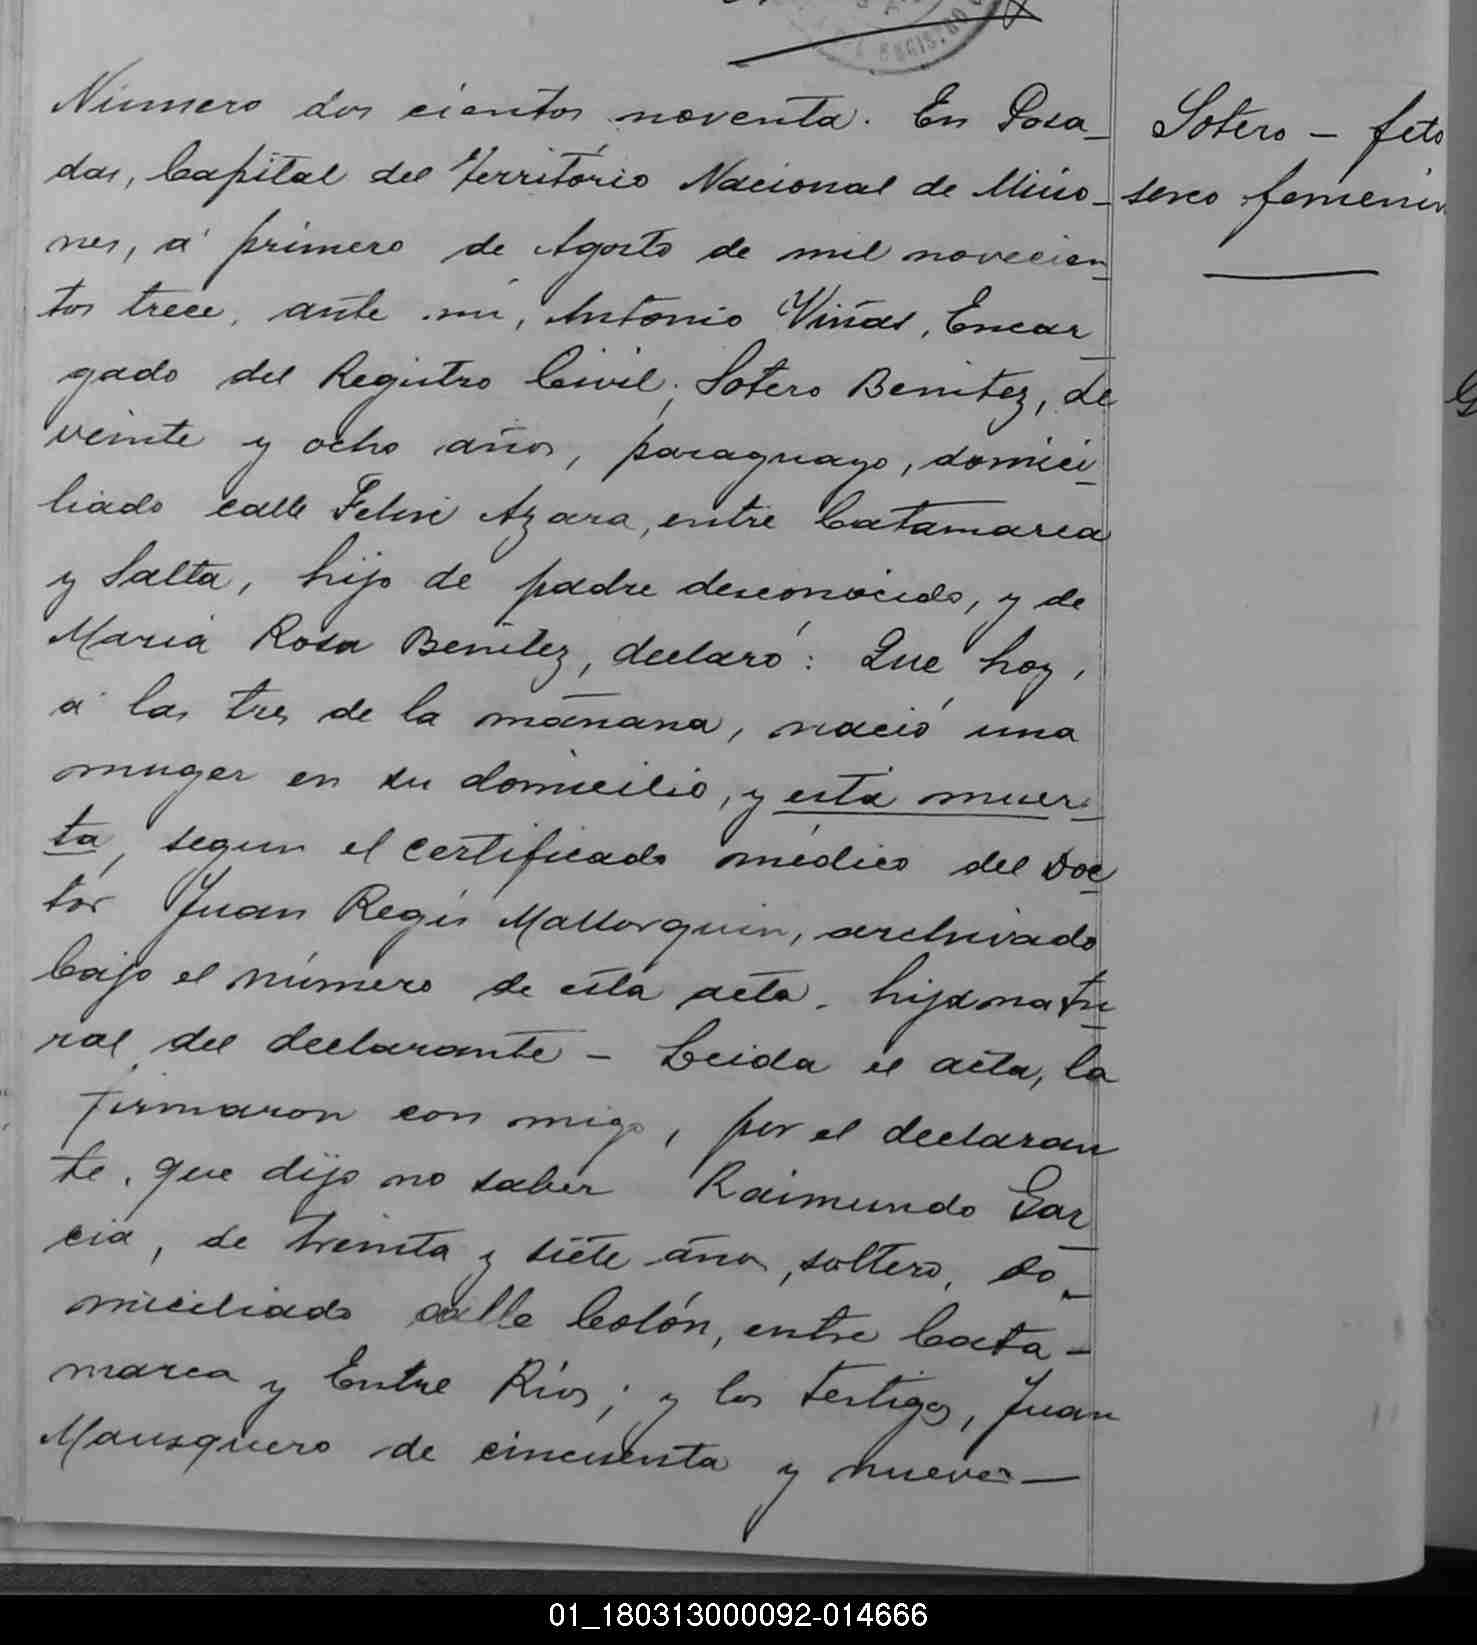 REGISTRO
Número dos cientos noventa. En Posa_
das, Capital del Território Nacional de Misio_
nes, á primero de Agosto de mil novecien_
tos trece, ante mi, Antonio Viñas, Encar_
gado del Registro Civil; Sotero Benitez, de
veinte y ocho años, paraguayo, domici_
liado calle Felix Azara, entre Catamarca
y Salta, hijo de padre desconocido, y de
Maria Rosa Benitez, declaró: Que hoy,
á las tres de la mañana, nació una
muger en su domicilio, y está muer_
ta, segun el certificado médico del Doc_
tor Juan Regis Mallorquin, archivado
bajo el número de esta acta. hija natu_
ral del declarante – Leida el acta, la
firmaron con migo, por el declaran
te, que dijo no saber Raimundo Gar_
cia, de treinta y siete años, soltero, do_
miciliado calle Colón, entre Cata_
marca y Entre Rios; y los testigos, Juan
Mausquero de cincuenta y nueve –
Sotero – feto
sexo femenin
01_180313000092-014666